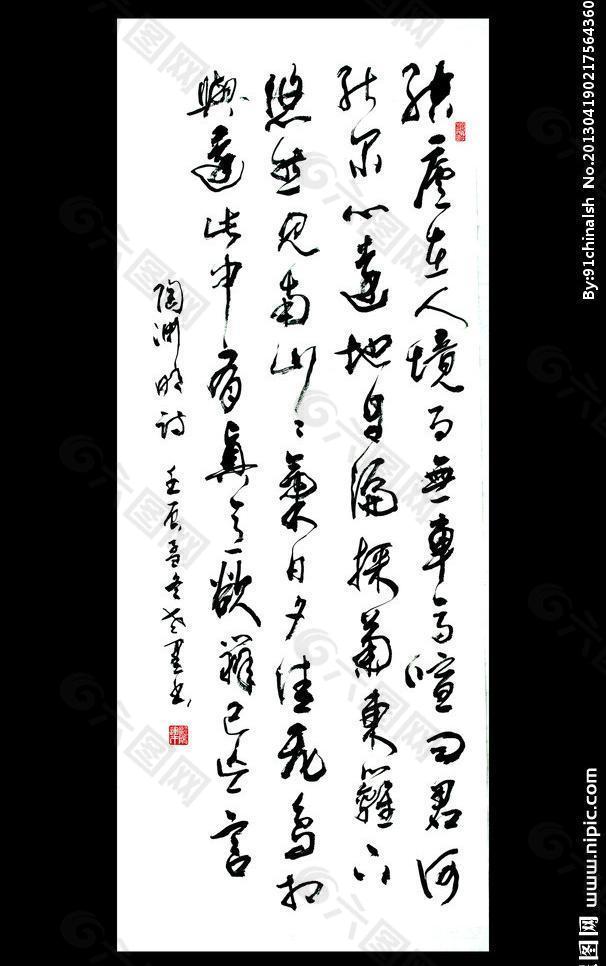 結廬在人境而無車馬喧問君何
能爾心遠地自偏採菊東籬下
悠然見南山々氣日夕佳飛鳥相
與還此中有真意欲辨已忘言
陶渊明詩 壬辰孟冬 書
By:91chinalsh No.201304190217564360
图网 www.nipic.com
六图网